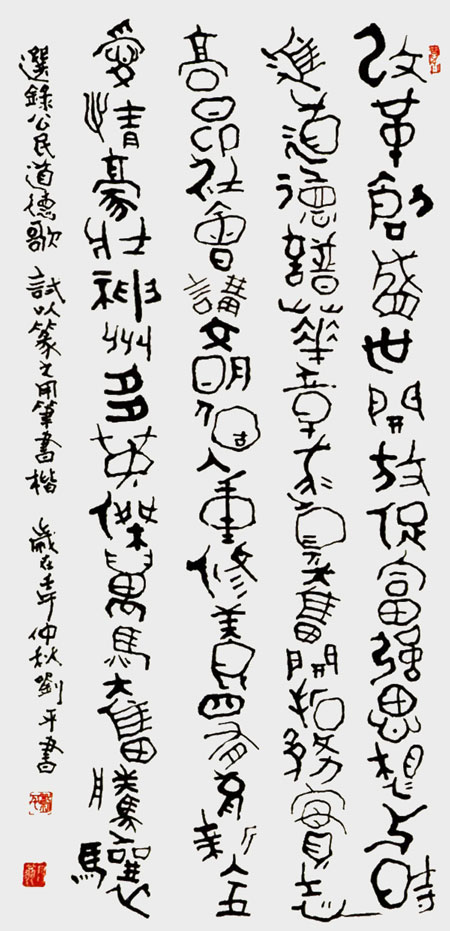 改革創盛世開放促富強思想与時
進道德譜華章求真奮開拓務實志
高昂社會講文明個人重修養四有育新人五
愛情豪壯神州多英傑萬馬奮騰驤
選錄公民道德歌 試以篆之用筆書楷 歲在壬午仲秋劉平書